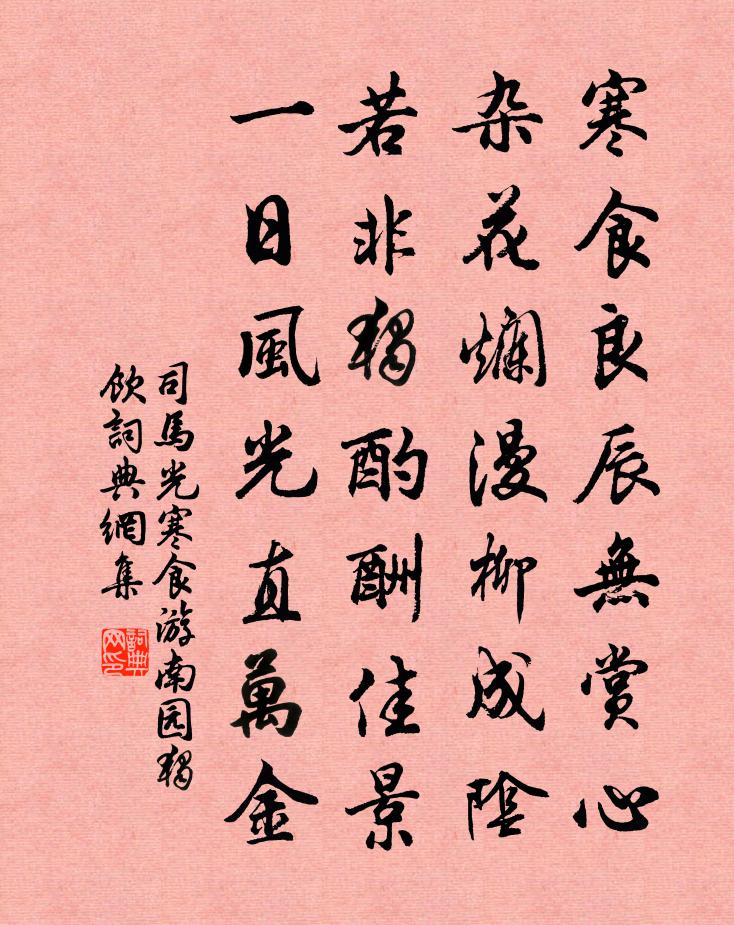 寒食良辰無賞心
杂花爛漫柳成陰
若非獨酌酬佳景
一日風光直萬金
司馬光寒食游南园獨
飲詞典網集
詞典网印